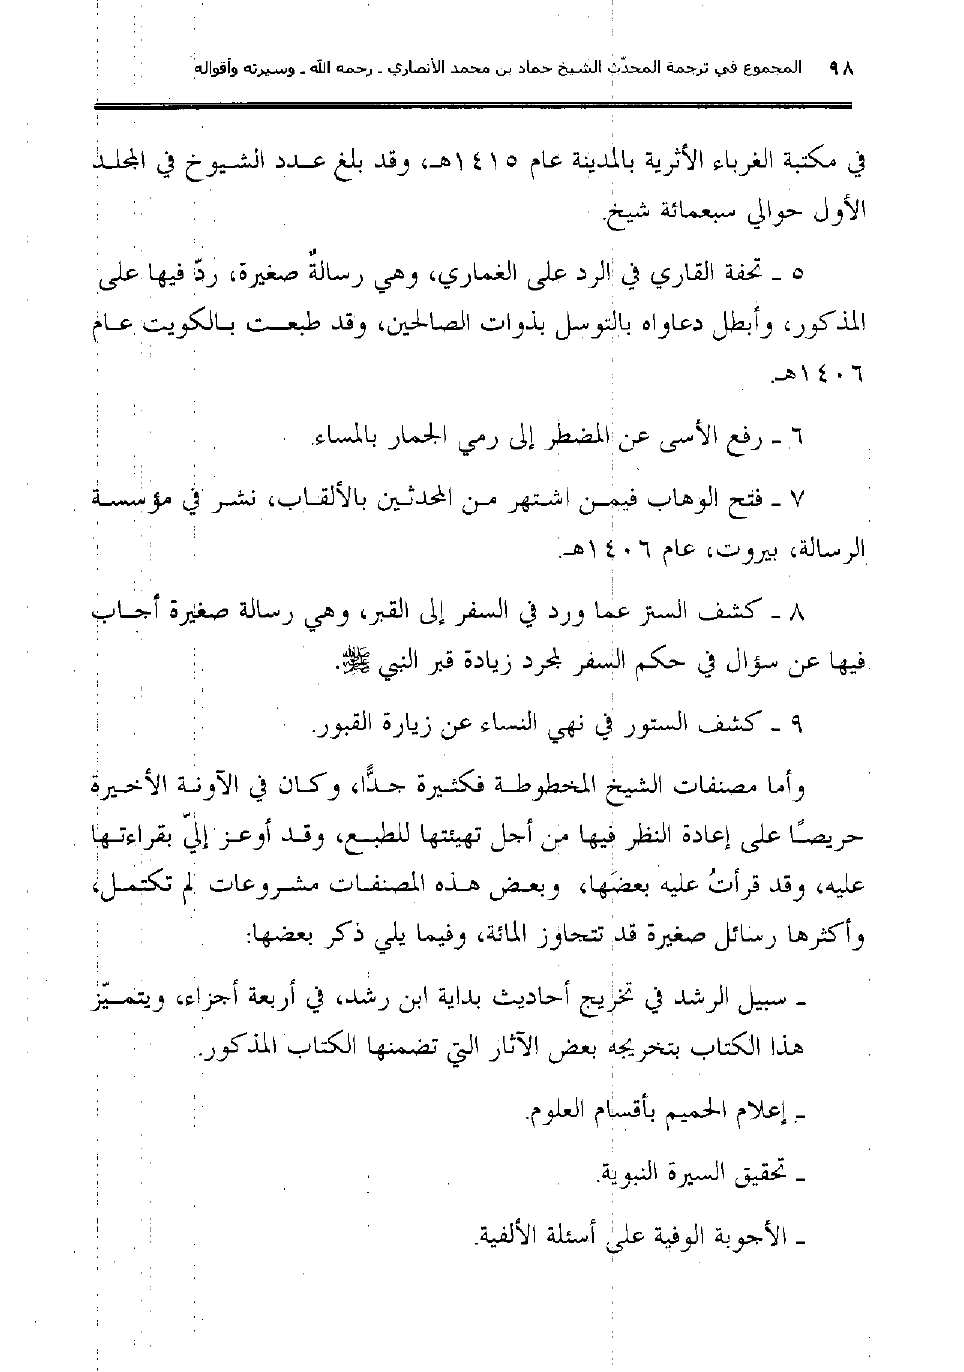 ٩٨ المجموع في ترجمة المحدّث الشيخ حماد بن محمد الأنصاري ـ رحمه الله ـ وسيرته وأقواله
في مكتبة الغرباء الأثرية بالمدينة عام ١٤١٥هـ، وقد بلغ عدد الشيوخ في المجلد
الأول حوالي سبعمائة شيخ.
٥ ـ تحفة القاري في الرد على الغماري، وهي رسالةٌ صغيرة، ردّ فيها على
المذكور، وأبطل دعاواه بالتوسل بذوات الصالحين، وقد طبعت بالكويت عام
١٤٠٦هـ.
٦ ـ رفع الأسى عن المضطر إلى رمي الجمار بالمساء.
٧ ـ فتح الوهاب فيمن اشتهر من المحدثين بالألقاب، نشر في مؤسسة
الرسالة، بيروت، عام ١٤٠٦هـ.
٨ ـ كشف الستر عما ورد في السفر إلى القبر، وهي رسالة صغيرة أجاب
فيها عن سؤال في حكم السفر لمجرد زيادة قبر النبي ﷺ.
٩ ـ كشف الستور في نهي النساء عن زيارة القبور.
وأما مصنفات الشيخ المخطوطة فكثيرة جدًّا، وكان في الآونة الأخيرة
حريصًا على إعادة النظر فيها من أجل تهيئتها للطبع، وقد أوعز إليّ بقراءتها
عليه، وقد قرأتُ عليه بعضَها، وبعض هذه المصنفات مشروعات لم تكتمل،
وأكثرها رسائل صغيرة قد تتجاوز المائة، وفيما يلي ذكر بعضها:
ـ سبيل الرشد في تخريج أحاديث بداية ابن رشد، في أربعة أجزاء، ويتميّز
هذا الكتاب بتخريجه بعض الآثار التي تضمنها الكتاب المذكور.
ـ إعلام الحميم بأقسام العلوم.
ـ تحقيق السيرة النبوية.
ـ الأجوبة الوفية على أسئلة الألفية.